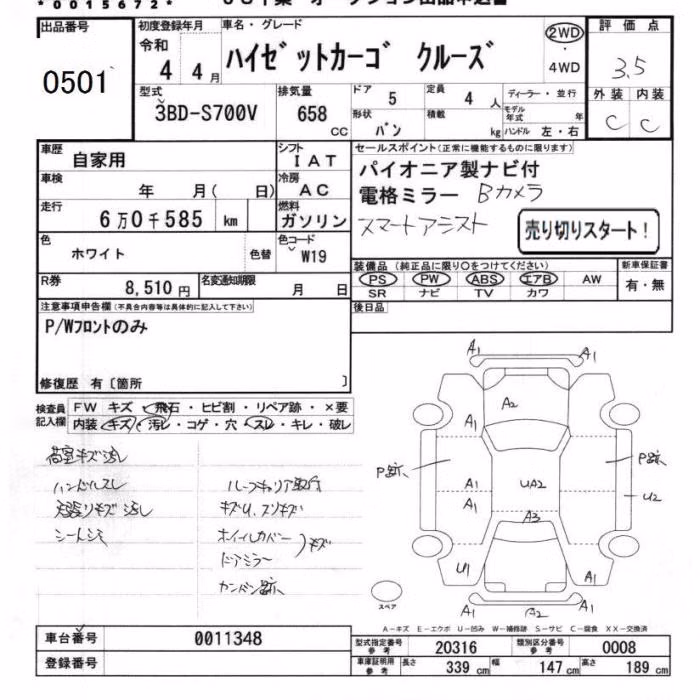 *0015672*
出品番号
0501
初度登録年月
令和
4 4月
車名・グレード
ハイゼットカーゴ クルーズ
2WD
・
4WD
評価点
3.5
外装 内装
C C
型式
3BD-S700V
排気量
658 CC
ドア 5
形状 バン
定員 4 人
積載 kg
ディーラー・並行
モデル年式 年
ハンドル 左・右
車歴
自家用
シフト
IAT
車検
年 月( 日)
冷房
AC
走行
6万0千585 km
燃料
ガソリン
色
ホワイト
色替
色コード
W19
R券
8,510円
名変通知期限
月 日
セールスポイント(正常に機能するものに限ります)
パイオニア製ナビ付
電格ミラー Bカメラ
スマートアシスト
売り切りスタート!
装備品(純正品に限り○をつけてください)
PS PW ABS エアB AW
SR ナビ TV カワ
新車保証書
有・無
後日品
注意事項申告欄(不具合内容等は具体的に記入して下さい)
P/Wフロントのみ
修復歴 有〔箇所 〕
検査員記入欄
FW キズ・飛石・ヒビ割・リペア跡・×要
内装・キズ・汚レ・コゲ・穴・スレ・キレ・破レ
荷室キズ汚レ
ハンドルスレ
内張リキズ汚レ
シートシミ
ルーフキャリア取付
キズU、スリキズ
ホイールカバー
ドアミラー
)キズ
カンバン跡
A1 A1
A2
A1
P跡 P跡
A1 UA2 U2
A1
A3
U1 A1
A1 A2 A1
スペア
A-キズ E-エクボ U-凹み W-補修跡 S-サビ C-腐食 XX-交換済
車台番号
0011348
登録番号
型式指定番号 参考
20316
類別区分番号 参考
0008
車庫証明用 参考
長さ 339 cm
幅 147 cm
高さ 189 cm